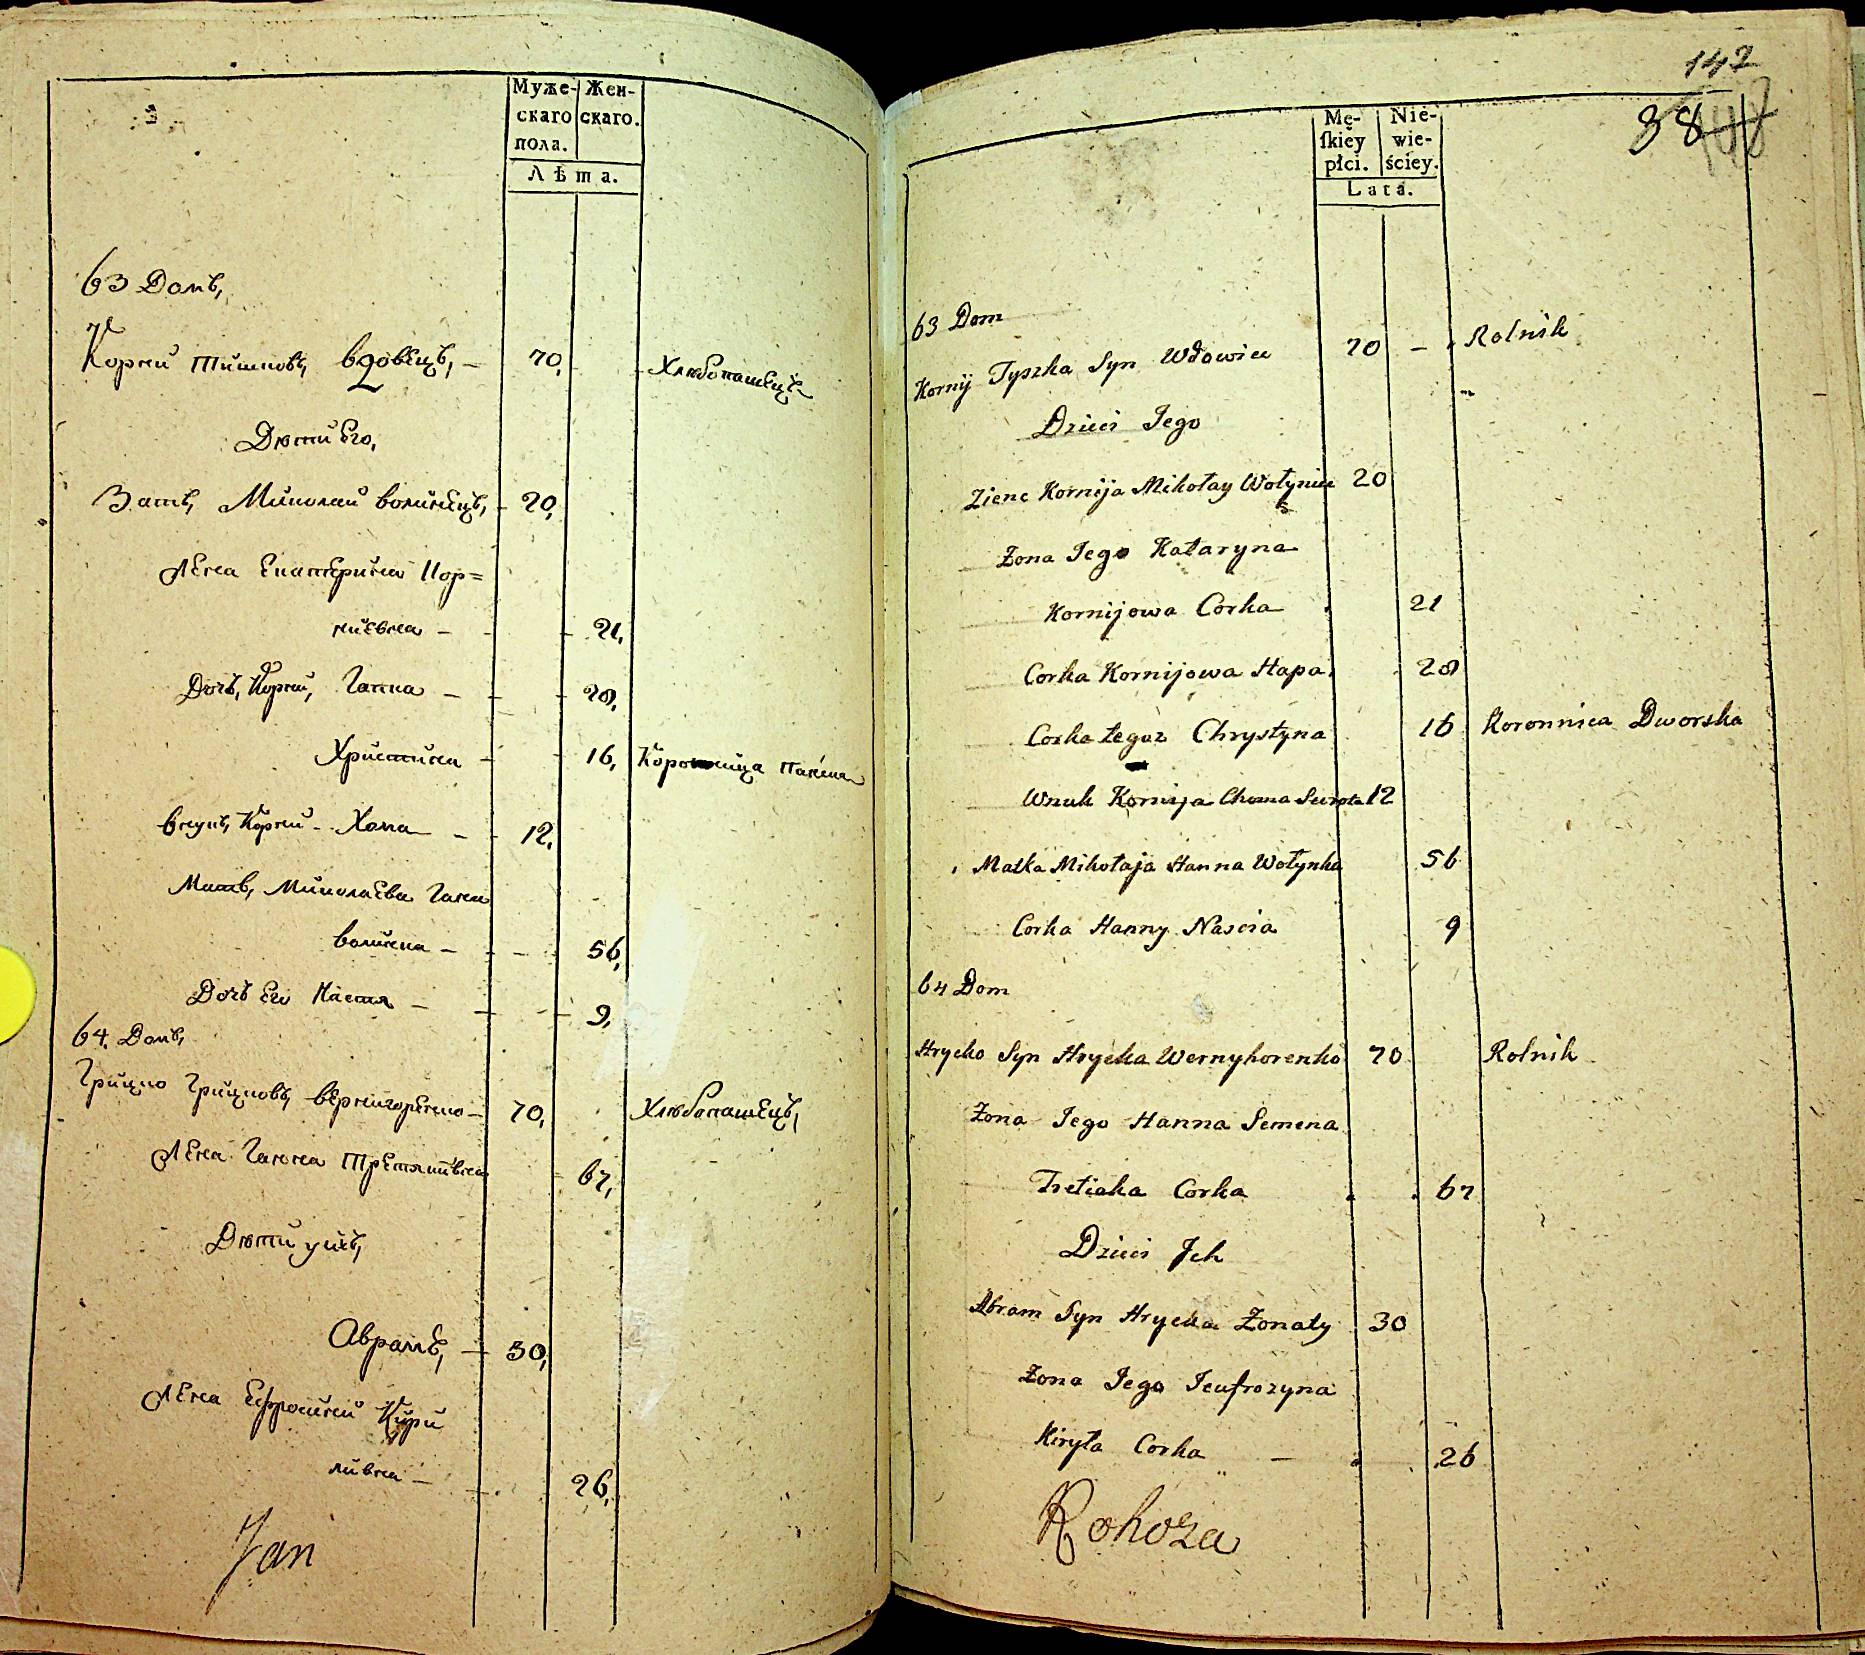 Муже-
скаго
пола.
Жен-
скаго.
Лѣта.
63 Домъ,
Корний Тишковъ, вдовецъ, — 70, Хлѣбопашецъ
Дѣти Его,
Зять, Миколай волинецъ, - 20,
Жена Екатерина Кор=
ниевна - - 21,
Дочь, Корни, Гапка — - - 20,
Христина - - 16, Коровница панска
внукъ, Корний - Хома — - 12,
Мать, Миколаева Ганна
волинка — - - 56,
Дочь Его Настя — - - 9,
64. Домъ,
Грицко Грицковъ, вернигоренко — 70, Хлѣбопашецъ,
Жена Ганна Третяковна 67,
Дѣти ихъ,
Аврамъ, — 30,
Жена Ефросиния Кири
ловна — 26,
Jan
147
38
Mę-
ſkiéy
płci.
Nie-
wie-
ściey.
Lata.
63 Dom
Kornij Tyszka Syn Wdowiec 70 — Rolnik
Dzieci Jego
Zienc Kornija Mikołay Wołyniec 20
Żona Jego Kataryna
Kornijowa Corka 21
Corka Kornijowa Hapa 20
Corka tegoz Chrystyna 16 Koronnica Dworska
Wnuk Kornija Choma Sierota 12
Matka Mikołaja Hanna Wołynka 56
Corka Hanny Nascia 9
64 Dom
Hrycko Syn Hrycka Wernyhorenko 70 Rolnik
Żona Jego Hanna Semena
Tretiaka Corka 67
Dzieci Ich
Abram Syn Hrycka Żonaty 30
Żona Jego Jeufrozyna
Kiryła Corka — 26
Rohoza